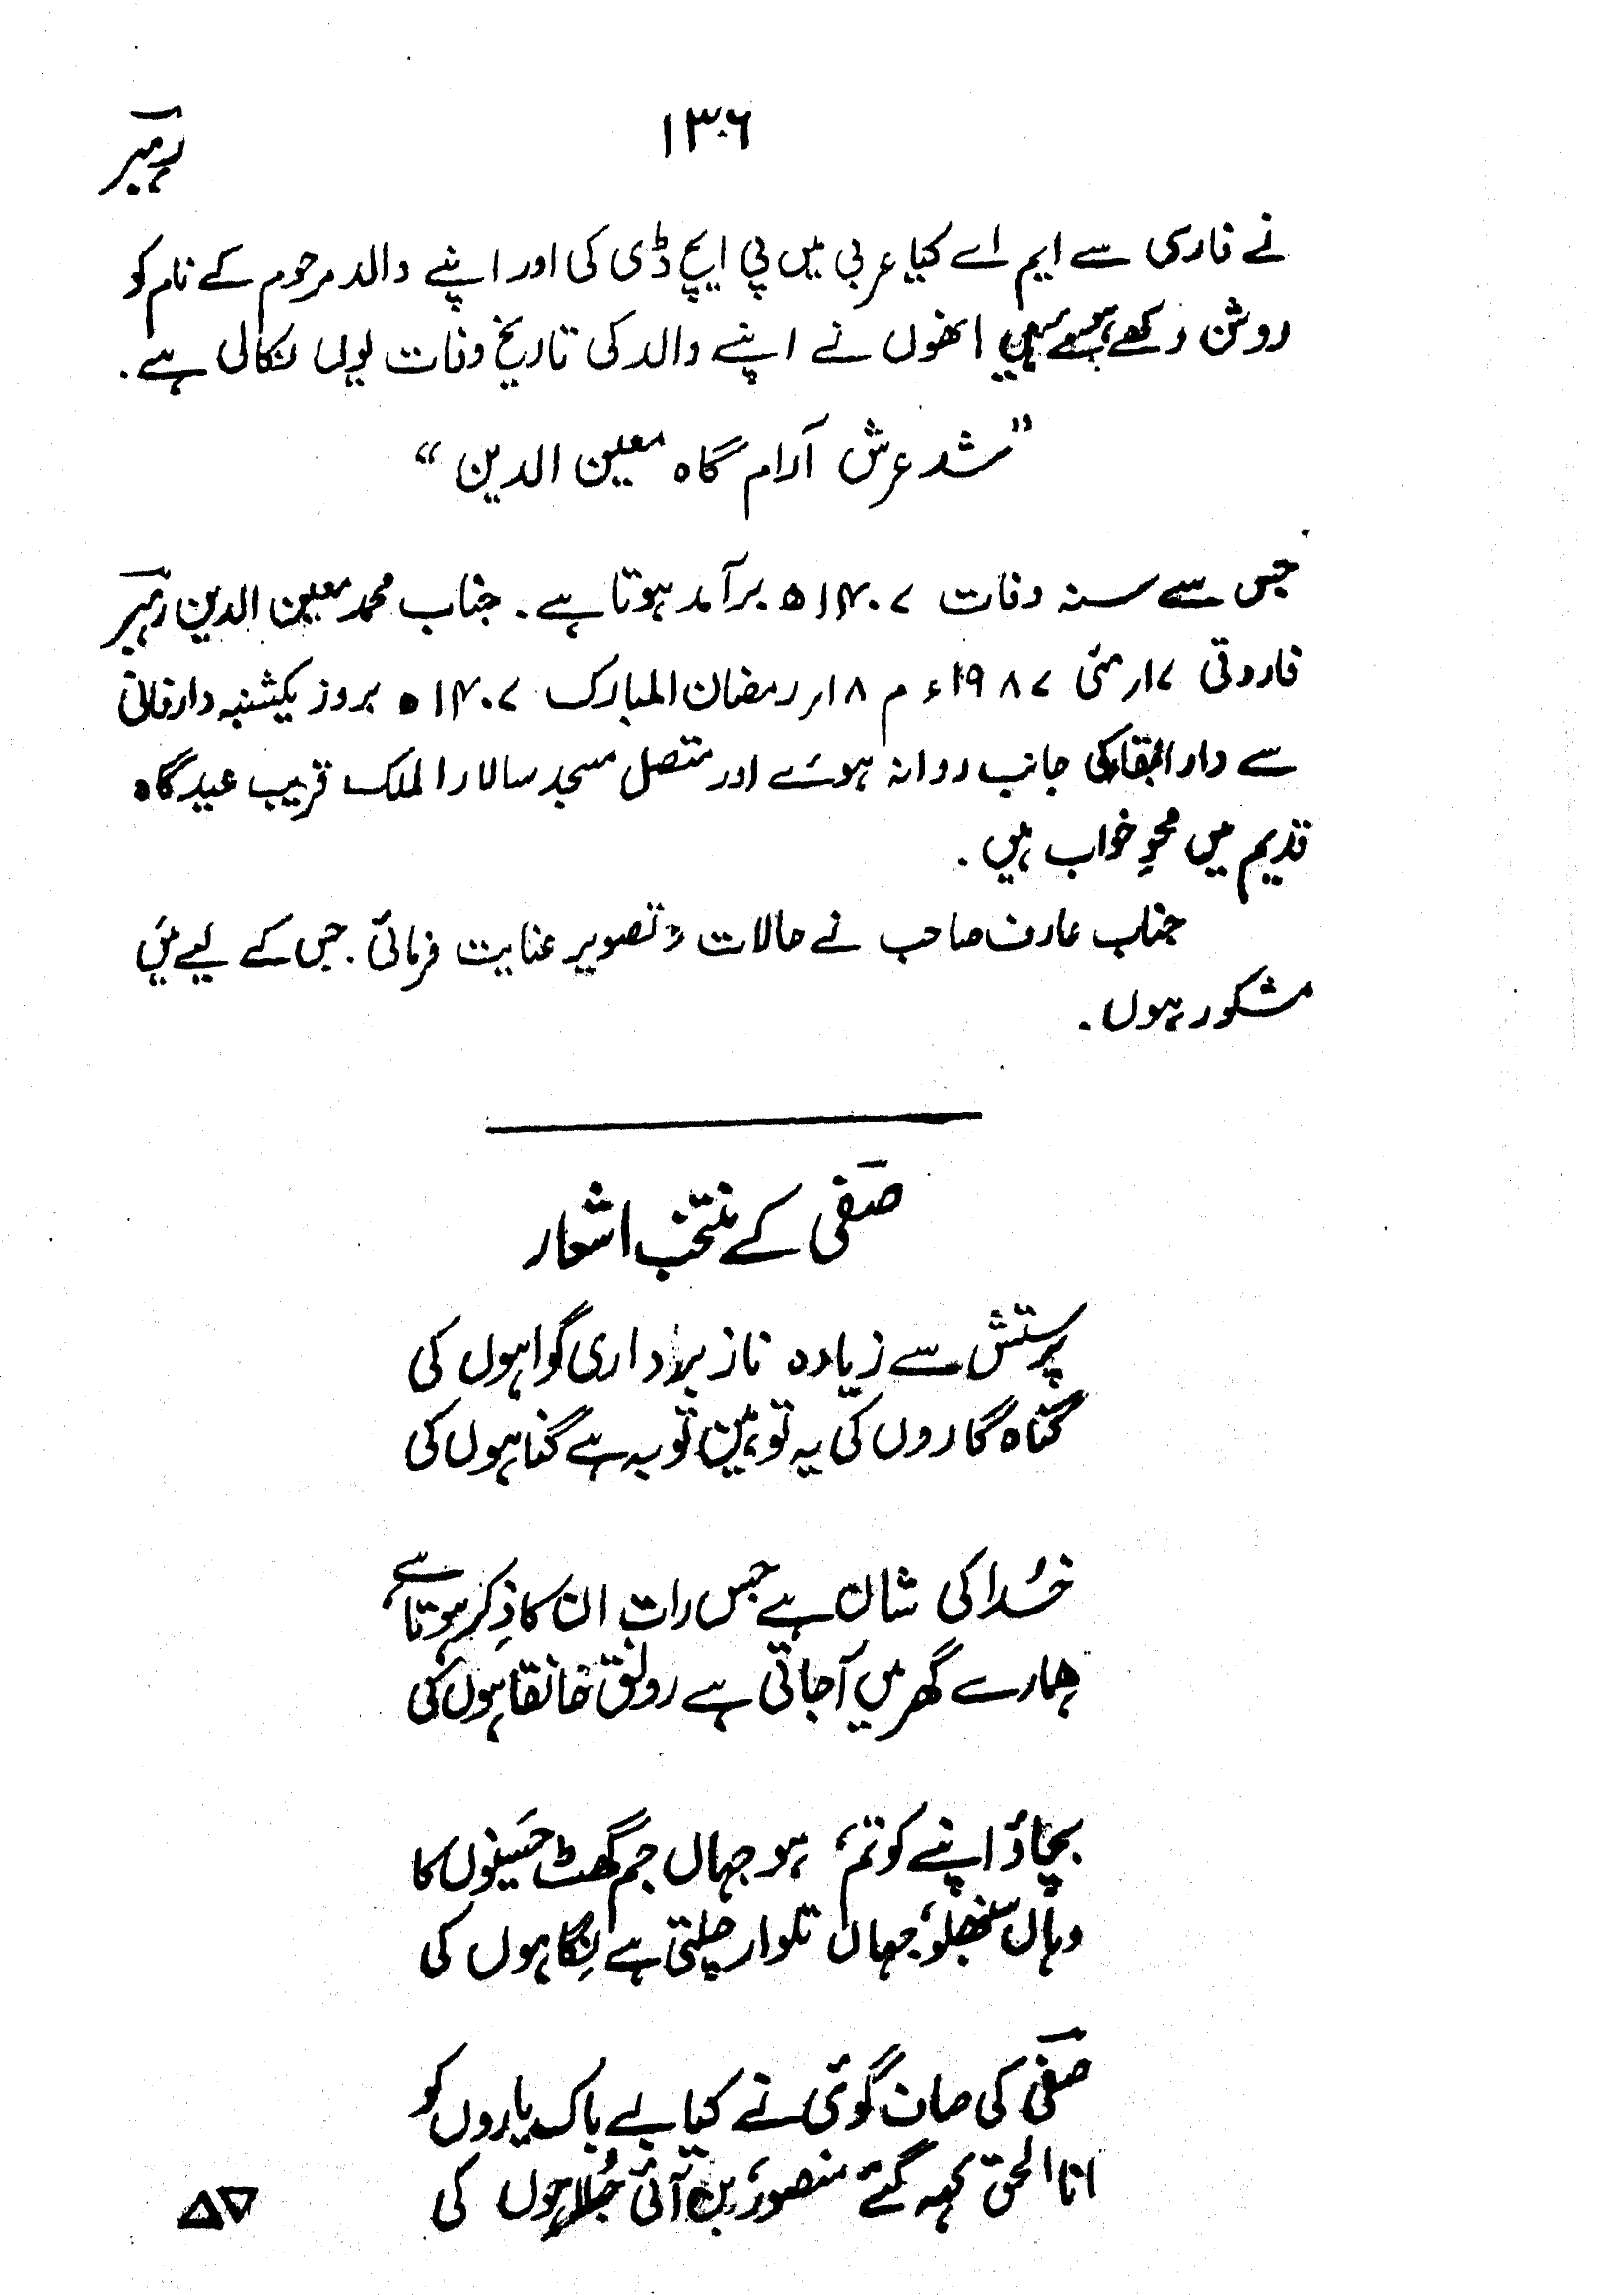 ۱۳۰۶
رہبر
نے فارسی سے ایم اے کیا عربی میں پی ایچ ڈی کی اور اپنے والد مرحوم کے نام کو
روشن رکھے ہوئے ہیں انھوں نے اپنے والد کی تاریخ وفات یوں نکالی ہے۔
"شد عرش آرام گاہ معین الدین"
جس سے سنہ وفات ۱۴۰۷ھ برآمد ہوتا ہے۔ جناب محمد معین الدین رہبر
فاروقی ۱۷؍ مئی ۱۹۸۷ء م ۱۸؍ رمضان المبارک ۱۴۰۷ھ بروز یکشنبہ دارفانی
سے دارالبقاء کی جانب روانہ ہوئے اور متصل مسجد سالار الملک قریب عیدگاہ
قدیم میں محوِ خواب ہیں۔
جناب عارف صاحب نے حالات و تصویر عنایت فرمائی۔ جس کے لیے میں
مشکور ہوں۔
صفی کے منتخب اشعار
پرستش سے زیادہ ناز برداری گواہوں کی
گناہ گاروں کی یہ توہین توبہ ہے گناہوں کی
خُدا کی شان ہے جس رات ان کا ذِکر ہوتا ہے
ہمارے گھر میں آجاتی ہے رونق خانقاہوں کی
بچاؤ اپنے کو تم، ہو جہاں جم گھٹ حَسینوں کا
وہاں سنبھلو، جہاں تلوار چلتی ہے نِگاہوں کی
صفی کی صاف گوئی نے کیا بے باک یاروں کو
انا الحق کہہ گئے منصور، بن آئی جُلاہوں کی